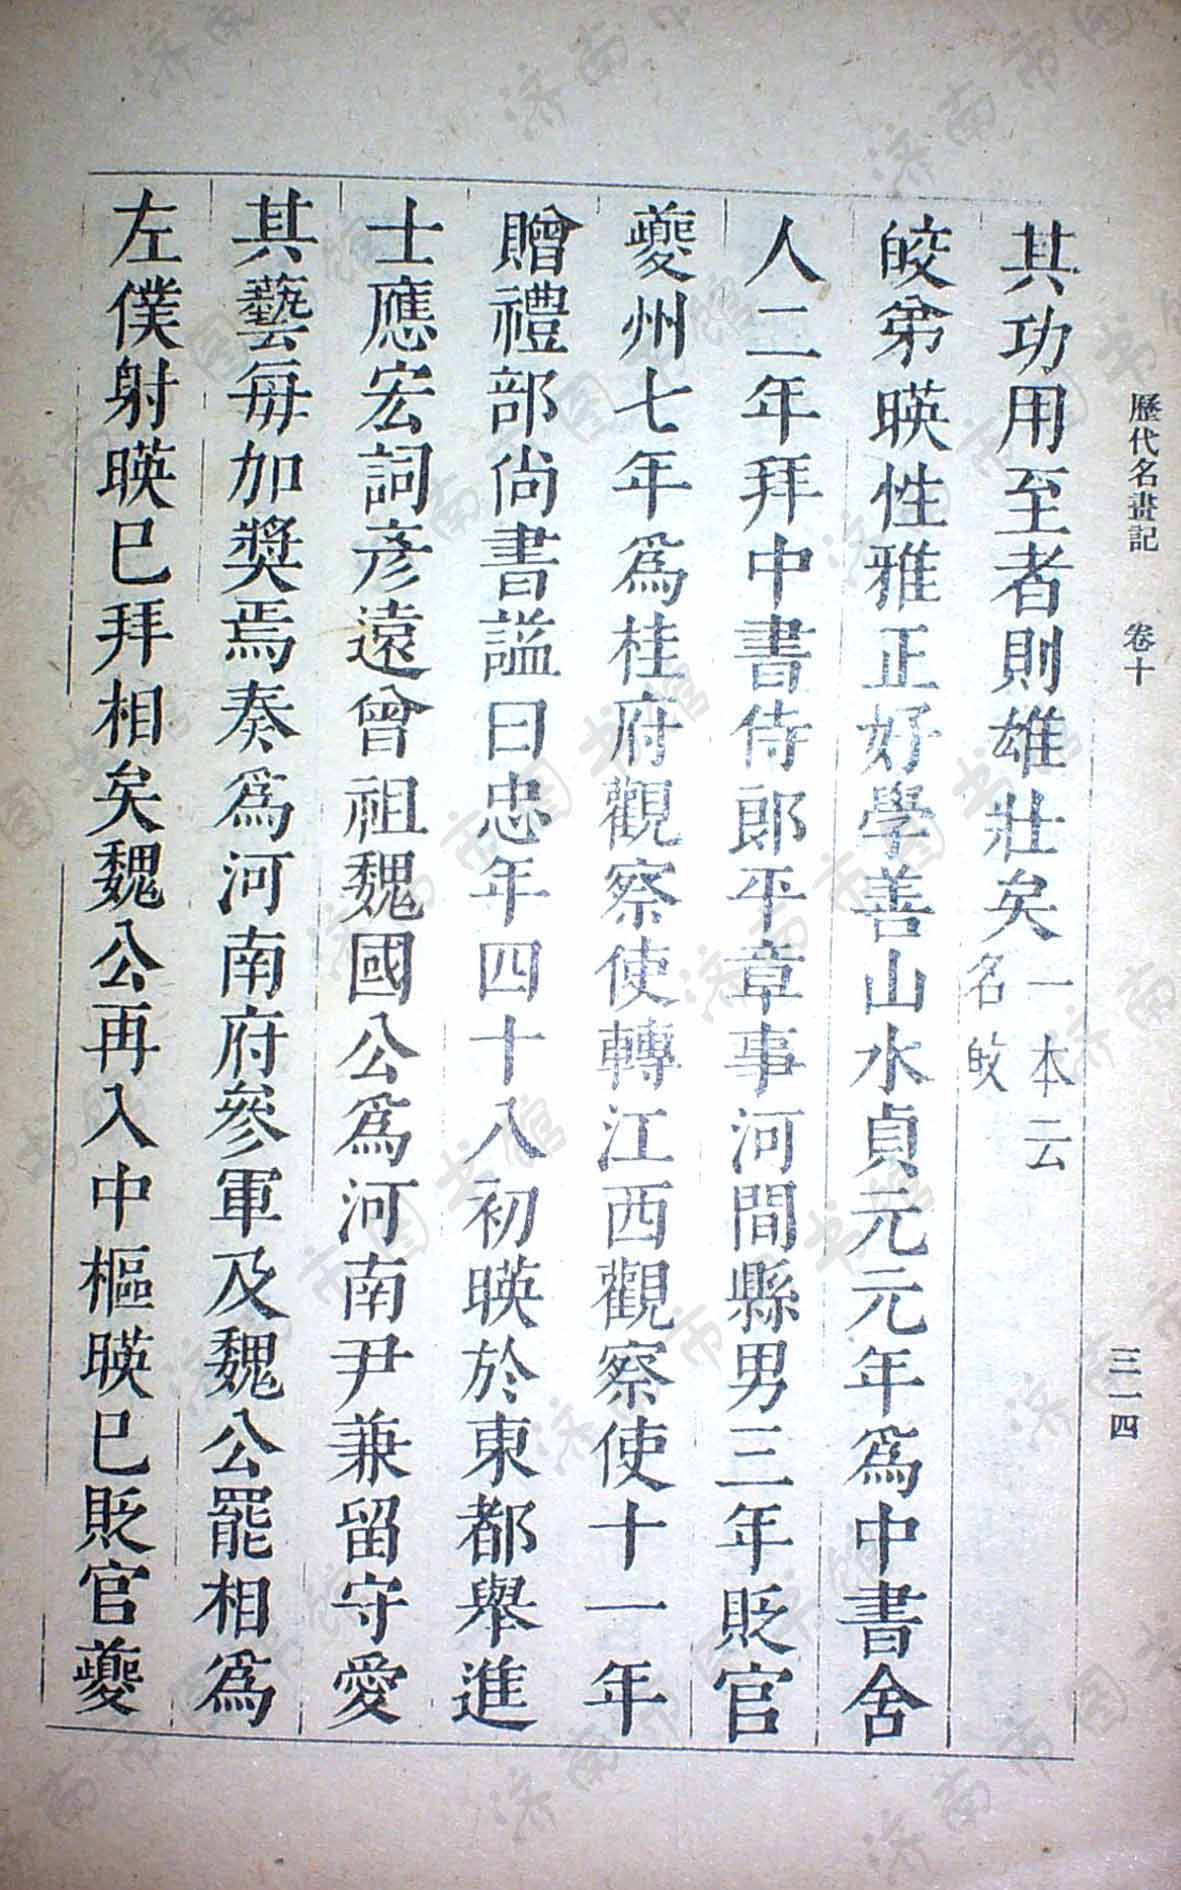 歷代名畫記　卷十　三一四
其功用至者則雄壯矣一本云名皎
皎弟暎性雅正好學善山水貞元元年爲中書舍
人二年拜中書侍郎平章事河間縣男三年貶官
夔州七年爲桂府觀察使轉江西觀察使十一年
贈禮部尚書謚曰忠年四十八初暎於東都舉進
士應宏詞彥遠曾祖魏國公爲河南尹兼留守愛
其藝每加獎焉奏爲河南府參軍及魏公罷相爲
左僕射暎巳拜相矣魏公再入中樞暎巳貶官夔